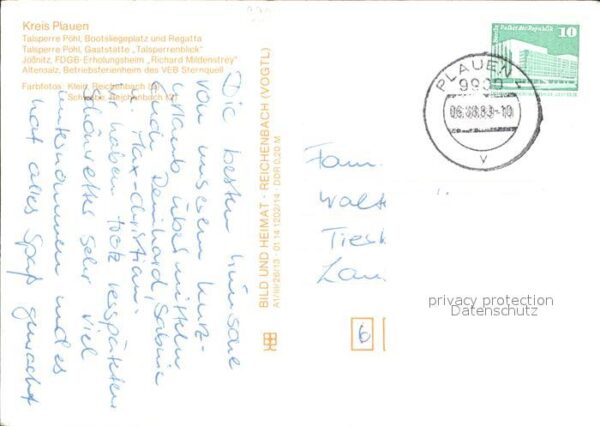 Kreis Plauen
Talsperre Pöhl, Bootsliegeplatz und Regatta
Talsperre Pöhl, Gaststätte „Talsperrenblick"
Jößnitz, FDGB-Erholungsheim „Richard Mildenstrey"
Altensalz, Betriebsferienheim des VEB Sternquell
Farbfotos Kleir Reichenbach
Reichenbach
Die besten Grüße
von unserem Kurz-
urlaub übermitteln
Euch Reinhard, Sabine
Max-Christian.
haben trotz verspäteten
sehr viel
unternommen und es
hat alles Spaß gemacht
BILD UND HEIMAT · REICHENBACH (VOGTL)
A1/III/26/13 01 14 1202/14 DDR 0,20 M
Palast der Republik
10
PLAUEN 1
9900
06.08.89-10
v
Fam.
Walt
Tiesk
Zau
privacy protection
Datenschutz
6